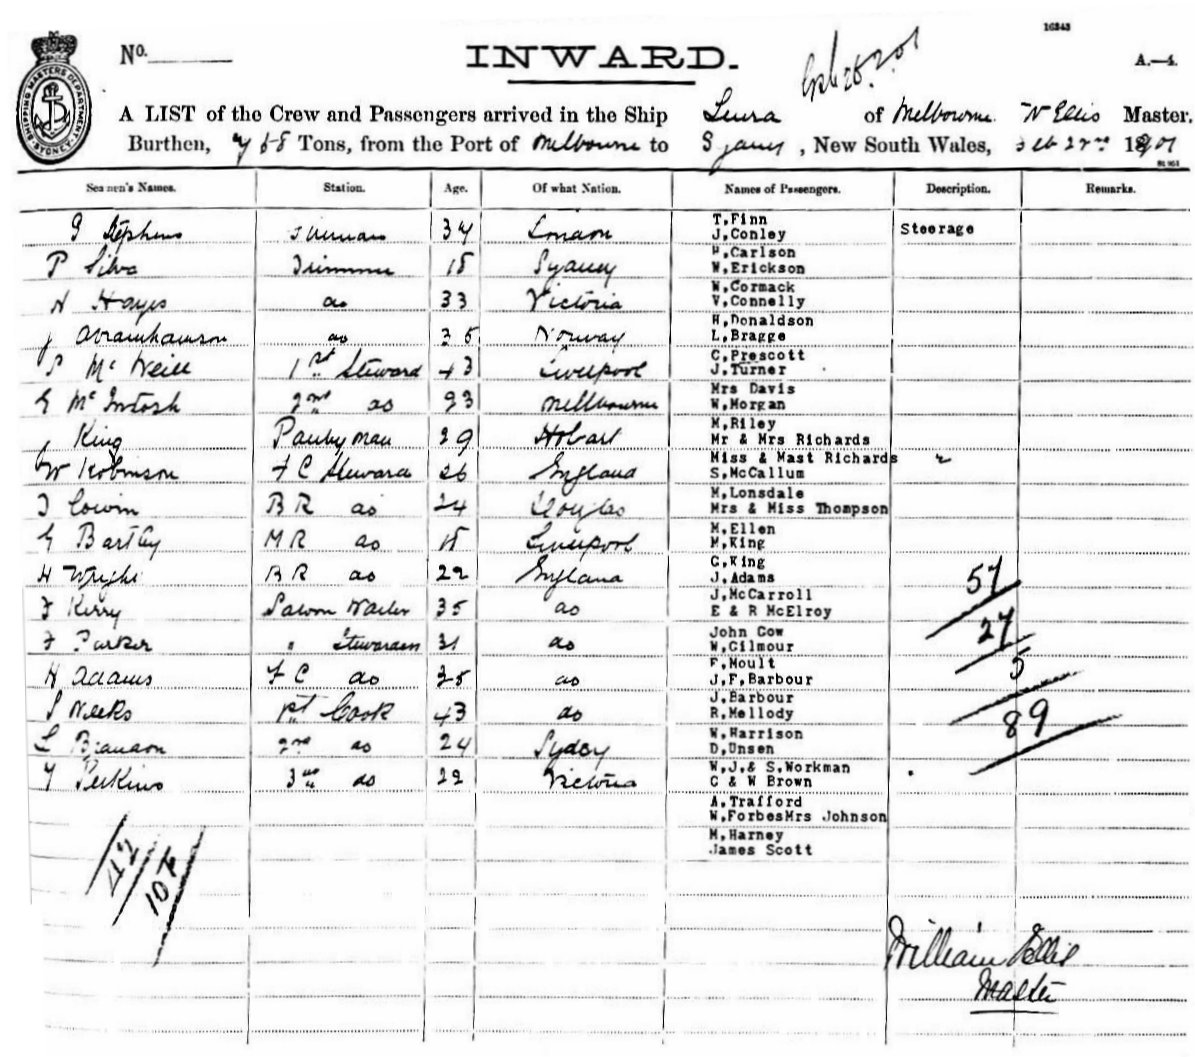 16343
No.
INWARD.
A.—4.
A LIST of the Crew and Passengers arrived in the Ship Leura of Melbourne W Ellis Master.
Burthen, Tons, from the Port of Melbourne to Sydney, New South Wales, Feb 22nd 1901
Seamen's Names. Station. Age. Of what Nation. Names of Passengers. Description. Remarks.
T,Finn
G Stephens 34 London J,Conley Steerage
H,Carlson
P Silva Trimmer 18 Sydney W,Erickson
W,Cormack
H Hayes do 33 Victoria V,Connelly
H,Donaldson
J Abrahamson do 35 Norway L,Bragge
C,Prescott
S McNeill 1st Steward 43 Liverpool J,Turner
Mrs Davis
G McIntosh 2nd do 23 Melbourne W,Morgan
M,Riley
J King Pantryman 29 Hobart Mr & Mrs Richards
Miss & Mast Richards
W Robinson F C Steward 26 England S,McCallum
M,Lonsdale
T Cowin B R do 24 Douglas Mrs & Miss Thompson
M,Ellen
G Bartley M R do 18 Liverpool M,King
C,King
H Wright B R do 22 England J,Adams
J,McCarroll
F Kerry Saloon Waiter 35 do E & R McElroy
John Cow
F Parker " Stewardess 31 do W,Gilmour
F,Moult
H Adams F C do 35 do J,F,Barbour
J,Barbour
S Weeks 1st Cook 43 do R,Mellody
W,Harrison
L 2nd do 24 Sydney D,Unsen
W,J,& S,Workman
Y Perkins 3rd do 22 Victoria C & W Brown
A,Trafford
W,Forbes Mrs Johnson
M,Harney
James Scott
57
27
5
89
42
107
William Ellis
Master